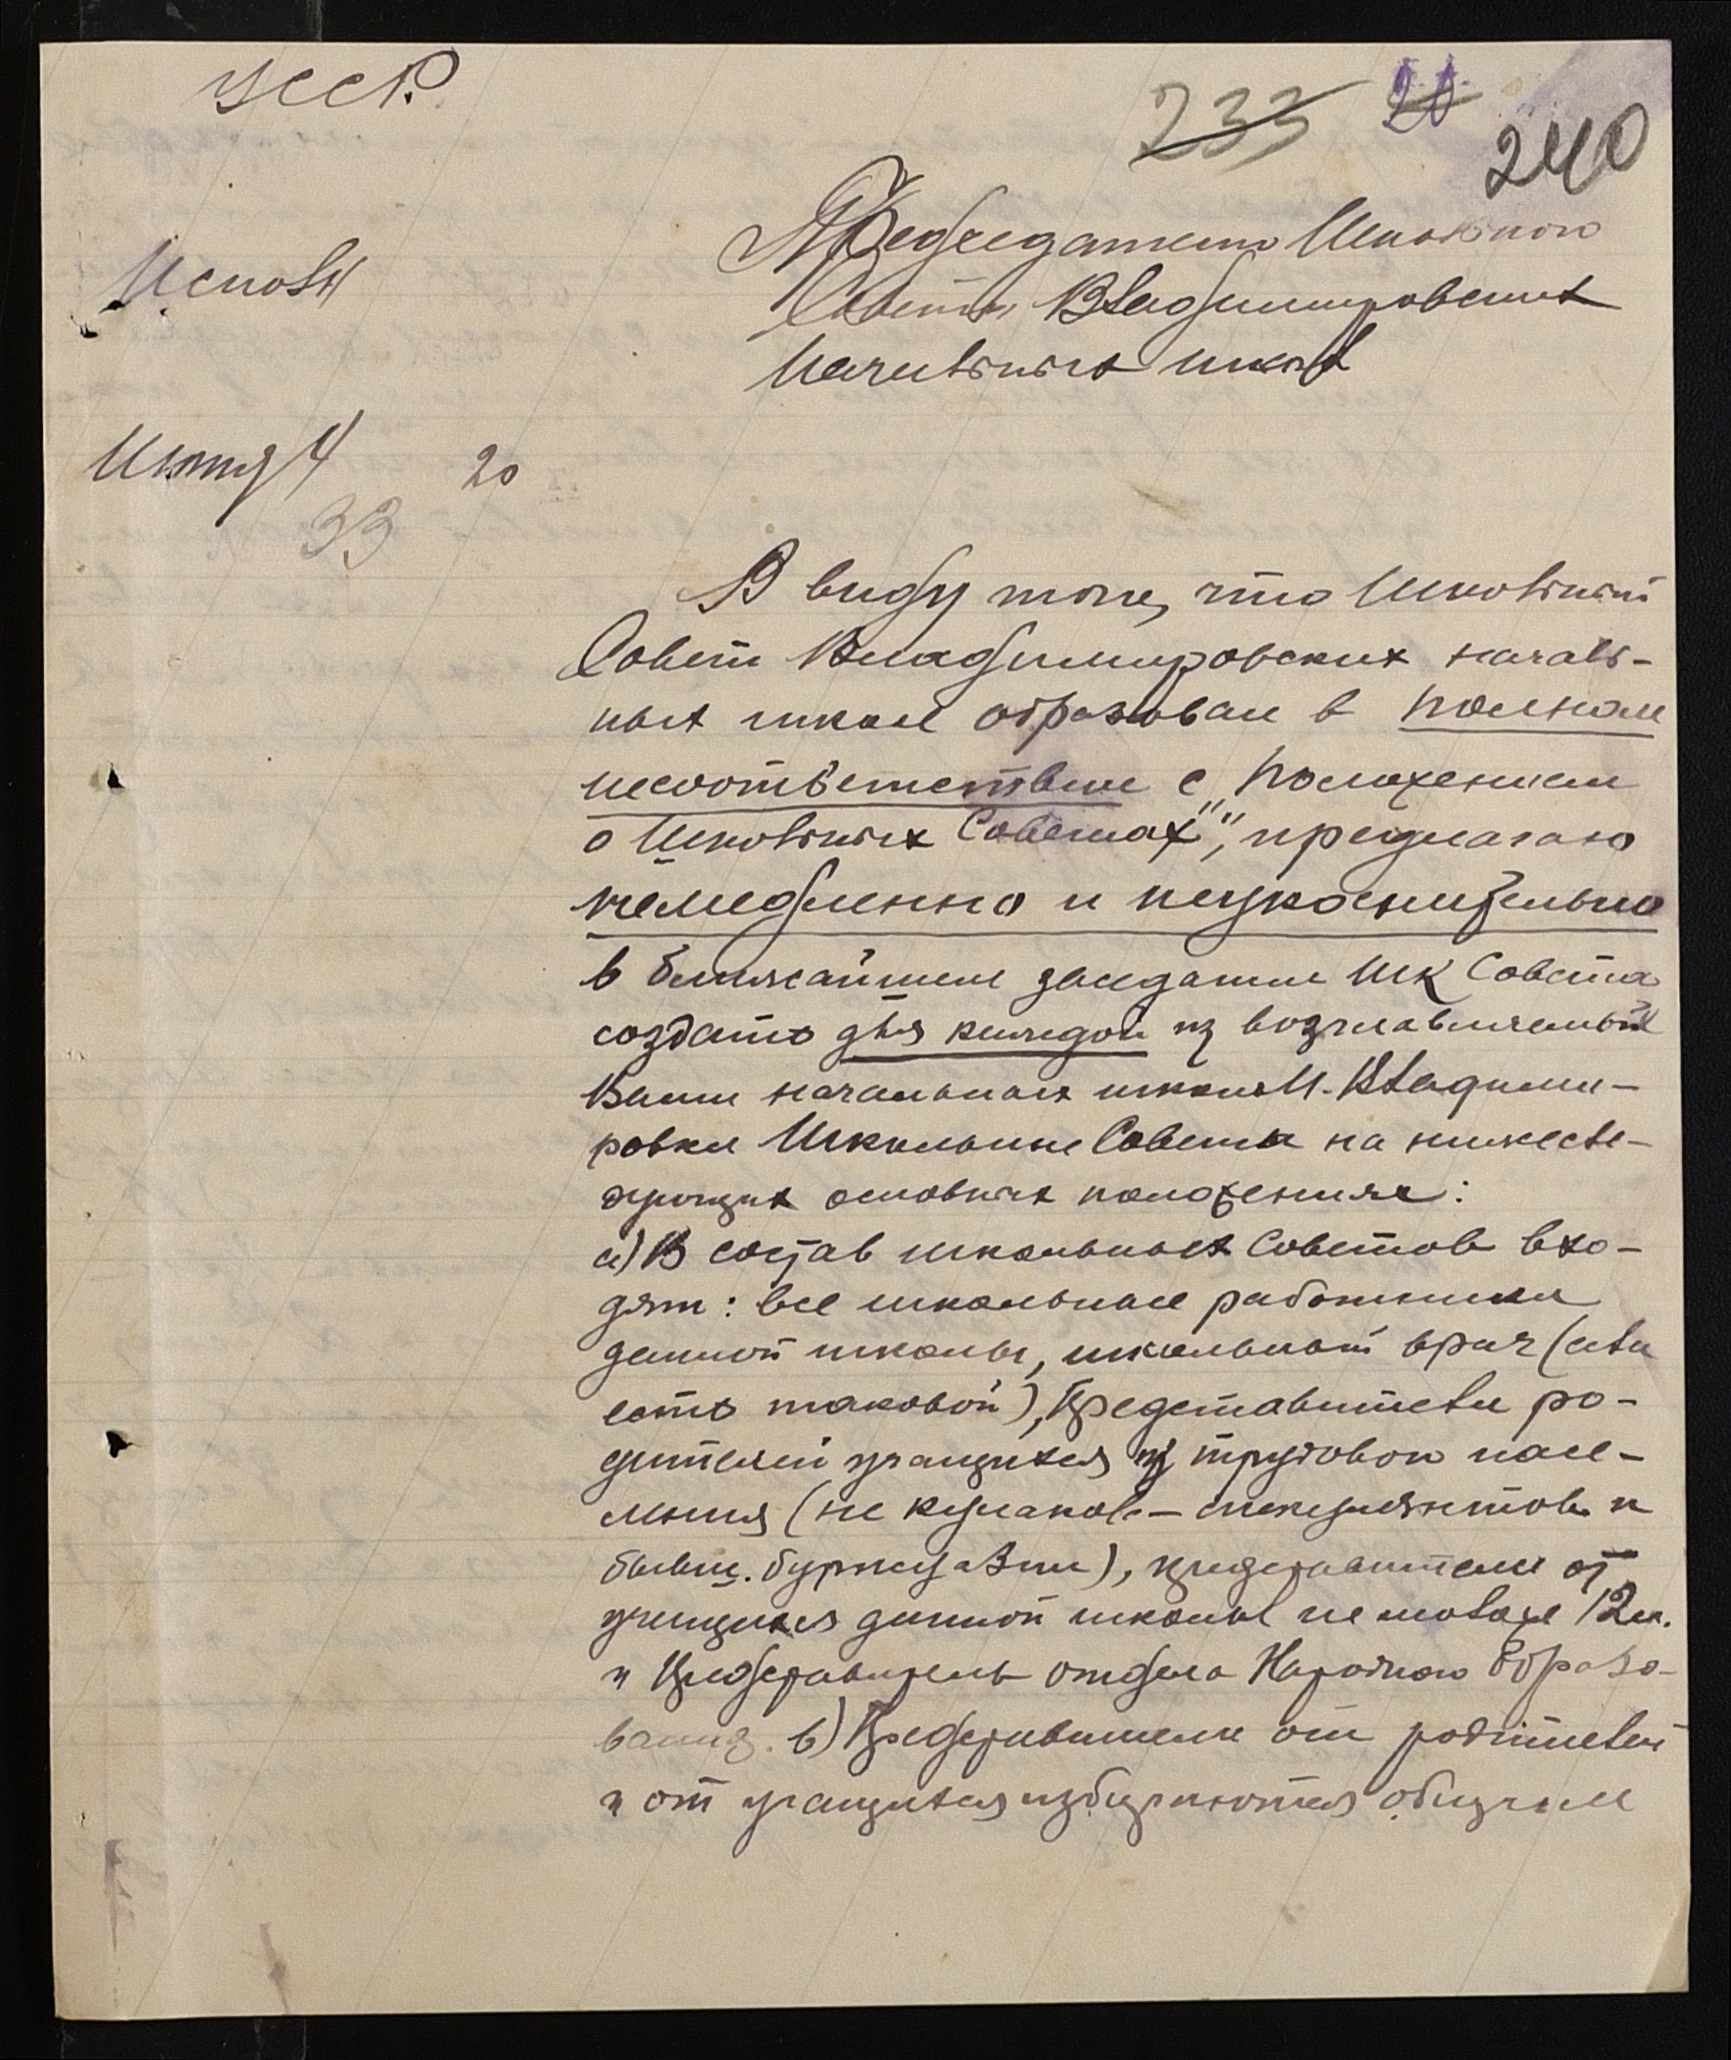 УССР.
233 20
240
Председателю Школьного
Совета Владимировских
Начальных школ
Исполк
Июня 4 20
33
В виду того, что Школьный
Совет Владимировских началь-
ных школ образован в полном
несоответствии с „Положением
о Школьных Советах", предлагаю
немедленно и неукоснительно
в ближайшем заседании Шк Совета
создать для каждой из возглавляемых
Вами начальных школ М. Владими-
ровки Школьные Советы на нижесле-
дующих основных положениях:
а) В состав школьных Советов вхо-
дят: все школьные работники
данной школы, школьный врач (если
есть таковой), Представители ро-
дителей учащихся из трудового насе-
ления (не кулаков - спекулянтов и
бывш. буржуазии), представители от
учащихся данной школы не моложе 12 л.
и Представитель отдела Народного Образо-
вания. в) Представители от родителей
и от учащихся избираются общим